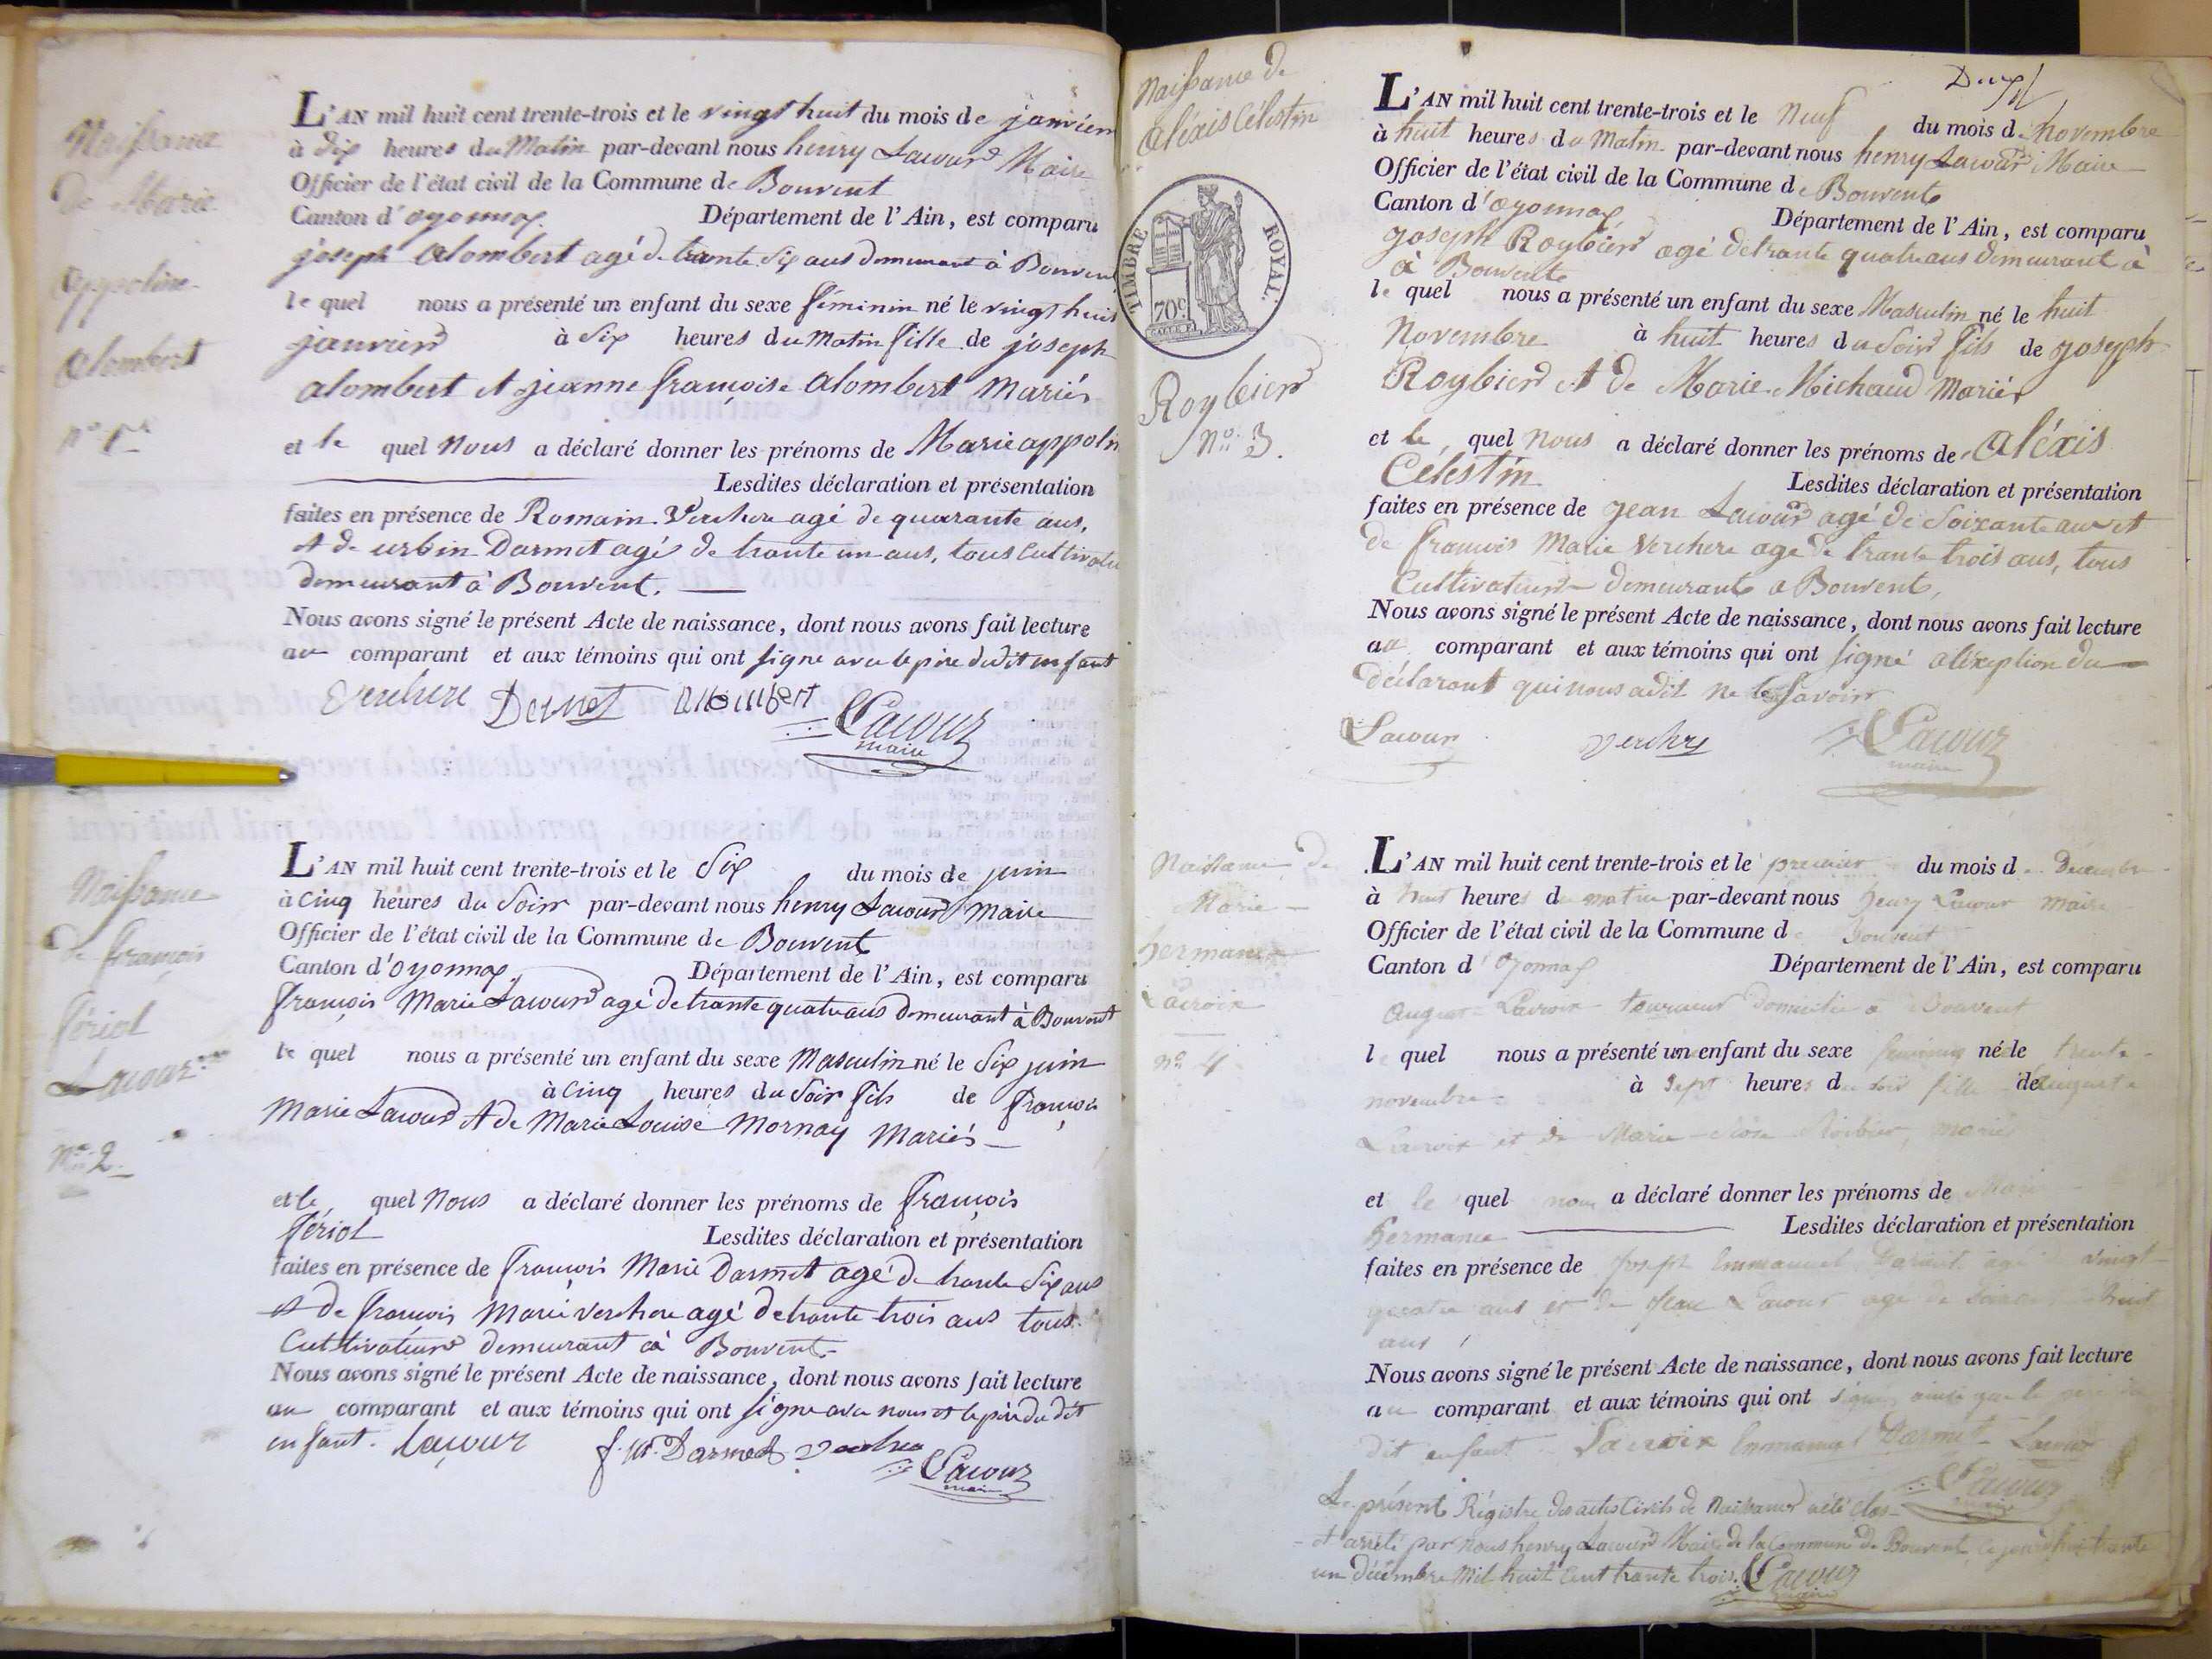 Naissance
de Marie
appoline
alombert
n° 1er
L'AN mil huit cent trente-trois et le vingt huit du mois de janvier
à dix heures du Matin par-devant nous henry Lacour Maire
Officier de l'état civil de la Commune de Bouvent
Canton d'oyonnax. Département de l'Ain, est comparu
joseph alombert agé de trante six ans demeurant à Bouvent
le quel nous a présenté un enfant du sexe féminin né le vingt huit
janvier à six heures du Matin fille de joseph
alombert et jeanne françoise alombert Mariés
et le quel nous a déclaré donner les prénoms de Marie appolin
Lesdites déclaration et présentation
faites en présence de Romain Verchere agé de quarante ans,
et de urbin Darmet agé de trante un ans, tous Cultivate
demeurant à Bouvent.
Nous avons signé le présent Acte de naissance, dont nous avons fait lecture
au comparant et aux témoins qui ont signe avec le père dudit enfant
Verchere Darmet allombert
Lacour
maire
Naissance
de françois
fériol
Lacour
N° 2.
L'AN mil huit cent trente-trois et le Six du mois de juin
à cinq heures du Soir par-devant nous henry Lacour Maire
Officier de l'état civil de la Commune de Bouvent
Canton d'oyonnax. Département de l'Ain, est comparu
françois Marie Lacour agé de trante quatre ans demeurant à Bouvent
le quel nous a présenté un enfant du sexe Masculin né le Six juin
à cinq heures du Soir fils de françois
Marie Lacour et de Marie Louise Mornay Mariés
et le quel nous a déclaré donner les prénoms de françois
fériol Lesdites déclaration et présentation
faites en présence de françois Marie Darmet agé de trante Six ans
et de françois Marie Verchere agé de trante trois ans tous
Cultivateurs demeurant à Bouvent.
Nous avons signé le présent Acte de naissance, dont nous avons fait lecture
au comparant et aux témoins qui ont signe avec nous et le père du dit
enfant. Lacour f. M. Darmet Verchere
Lacour
maire
Naissance de
aléxis Célestin
TIMBRE ROYAL.
70c
Roybier
N° 3.
L'AN mil huit cent trente-trois et le Neuf du mois de Novembre
à huit heures du Matin par-devant nous henry Lacour Maire
Officier de l'état civil de la Commune de Bouvent
Canton d'oyonnax Département de l'Ain, est comparu
joseph Roybier agé de trante quatre ans demeurant à
à Bouvent
le quel nous a présenté un enfant du sexe Masculin né le huit
Novembre à huit heures du Soir fils de joseph
Roybier et de Marie Michaud Mariés
et le quel nous a déclaré donner les prénoms de aléxis
Célestin Lesdites déclaration et présentation
faites en présence de jean Lacour agé de Soixante ans et
de francois Marie Verchere agé de trante trois ans, tous
Cultivateurs demeurants a Bouvent,
Nous avons signé le présent Acte de naissance, dont nous avons fait lecture
au comparant et aux témoins qui ont signé a l'éxeption du
déclarant qui nous a dit ne le Savoir
Lacour Verchere
Lacour
maire
Naissance de
Marie
hermance
Lacroix
n° 4
L'AN mil huit cent trente-trois et le premier du mois de Décembre
à huit heures du matin par-devant nous henry Lacour maire
Officier de l'état civil de la Commune de Bouvent
Canton d'oyonnax Département de l'Ain, est comparu
august Lacroix tourneur domicilié a Bouvent
le quel nous a présenté un enfant du sexe feminin née le trente
novembre à sept heures du soir fille de auguste
Lacroix et de Marie Roibier, mariés
et le quel nous a déclaré donner les prénoms de Marie
hermance Lesdites déclaration et présentation
faites en présence de joseph Emmanuel Darmet agé vingt
quatre ans et de jean Lacour agé de huit
ans
Nous avons signé le présent Acte de naissance, dont nous avons fait lecture
au comparant et aux témoins qui ont signé ainsi que le
dit enfant Lacroix Emmanuel Darmet Lacour
Lacour
Le présent Régistre des actes Civils de Naissance a été clos
et arrété par nous henry Lacour Maire de la Commune de Bouvent ce jourd'hui trante
un décembre Mil huit Cent trante trois. Lacour